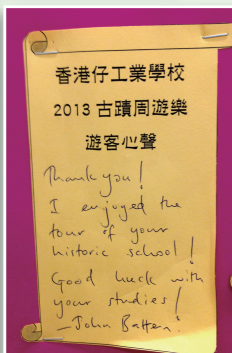 香港仔工業學校
2013 古蹟周遊樂
遊客心聲
Thank you!
I enjoyed the
tour of your
historic school!
Good luck with
your studies!
—John Batten.